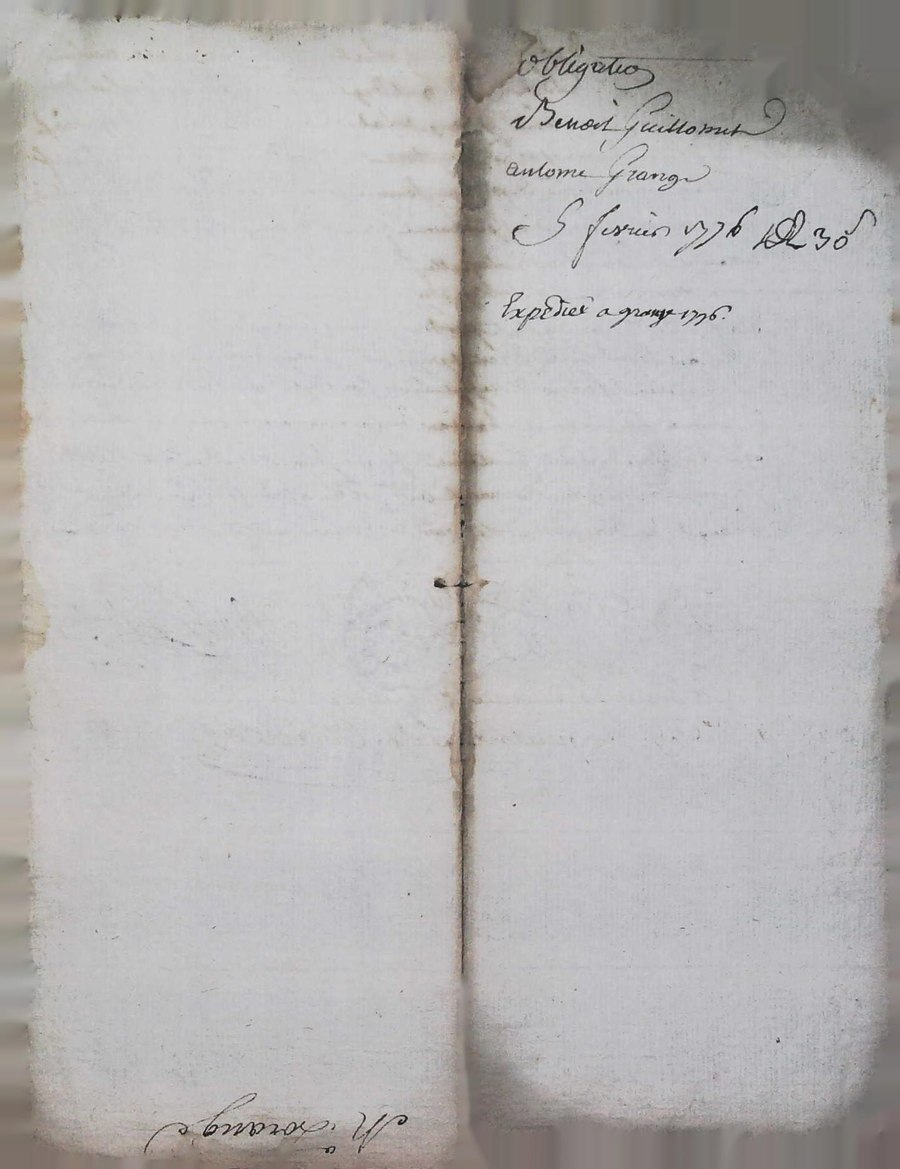 obligation
Benoit Guillomet
antoine Grange
5 fevrier 1776
Expedieé a grange 1776.
Grange